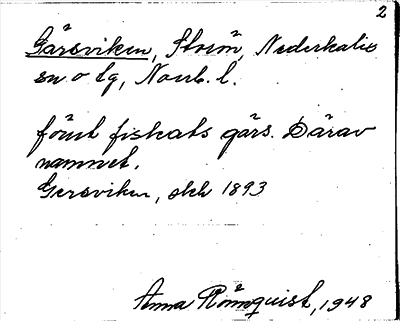 2
Gärsviken, Strörn, Nederkalix
sn o tg, Norrb. l.
förut fiskats gärs. Därav
namnet.
Gersviken, sklr 1893
Anna Rönnquist, 1948